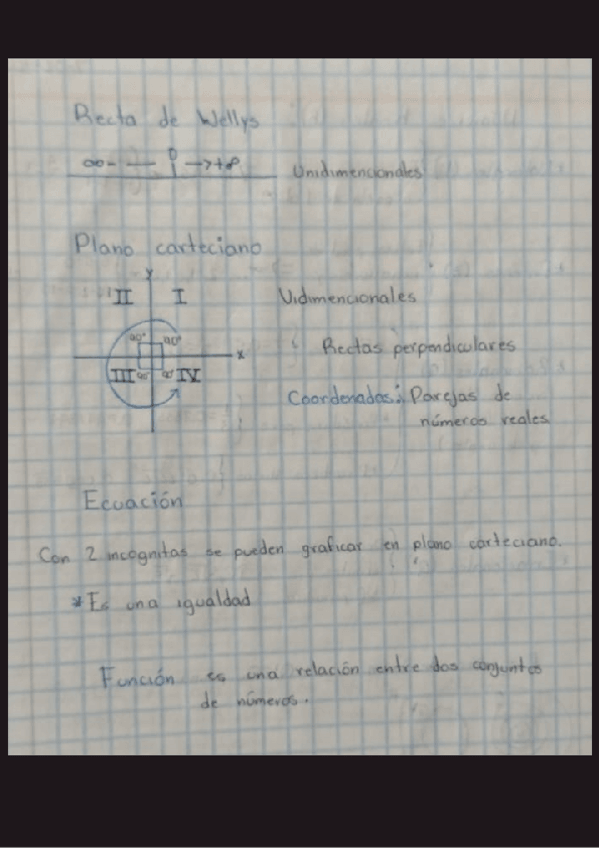 Recta de Wellys
∞- — 0 →+∞ Unidimencionales
Plano carteciano
y
II I Vidimencionales
90° 90° Rectas perpendiculares
x
III 90° 90° IV Coordenadas: Parejas de
números reales
Ecuación
Con 2 incognitas se pueden graficar en plano carteciano.
*Es una igualdad
Función es una relación entre dos conjuntos
de números.